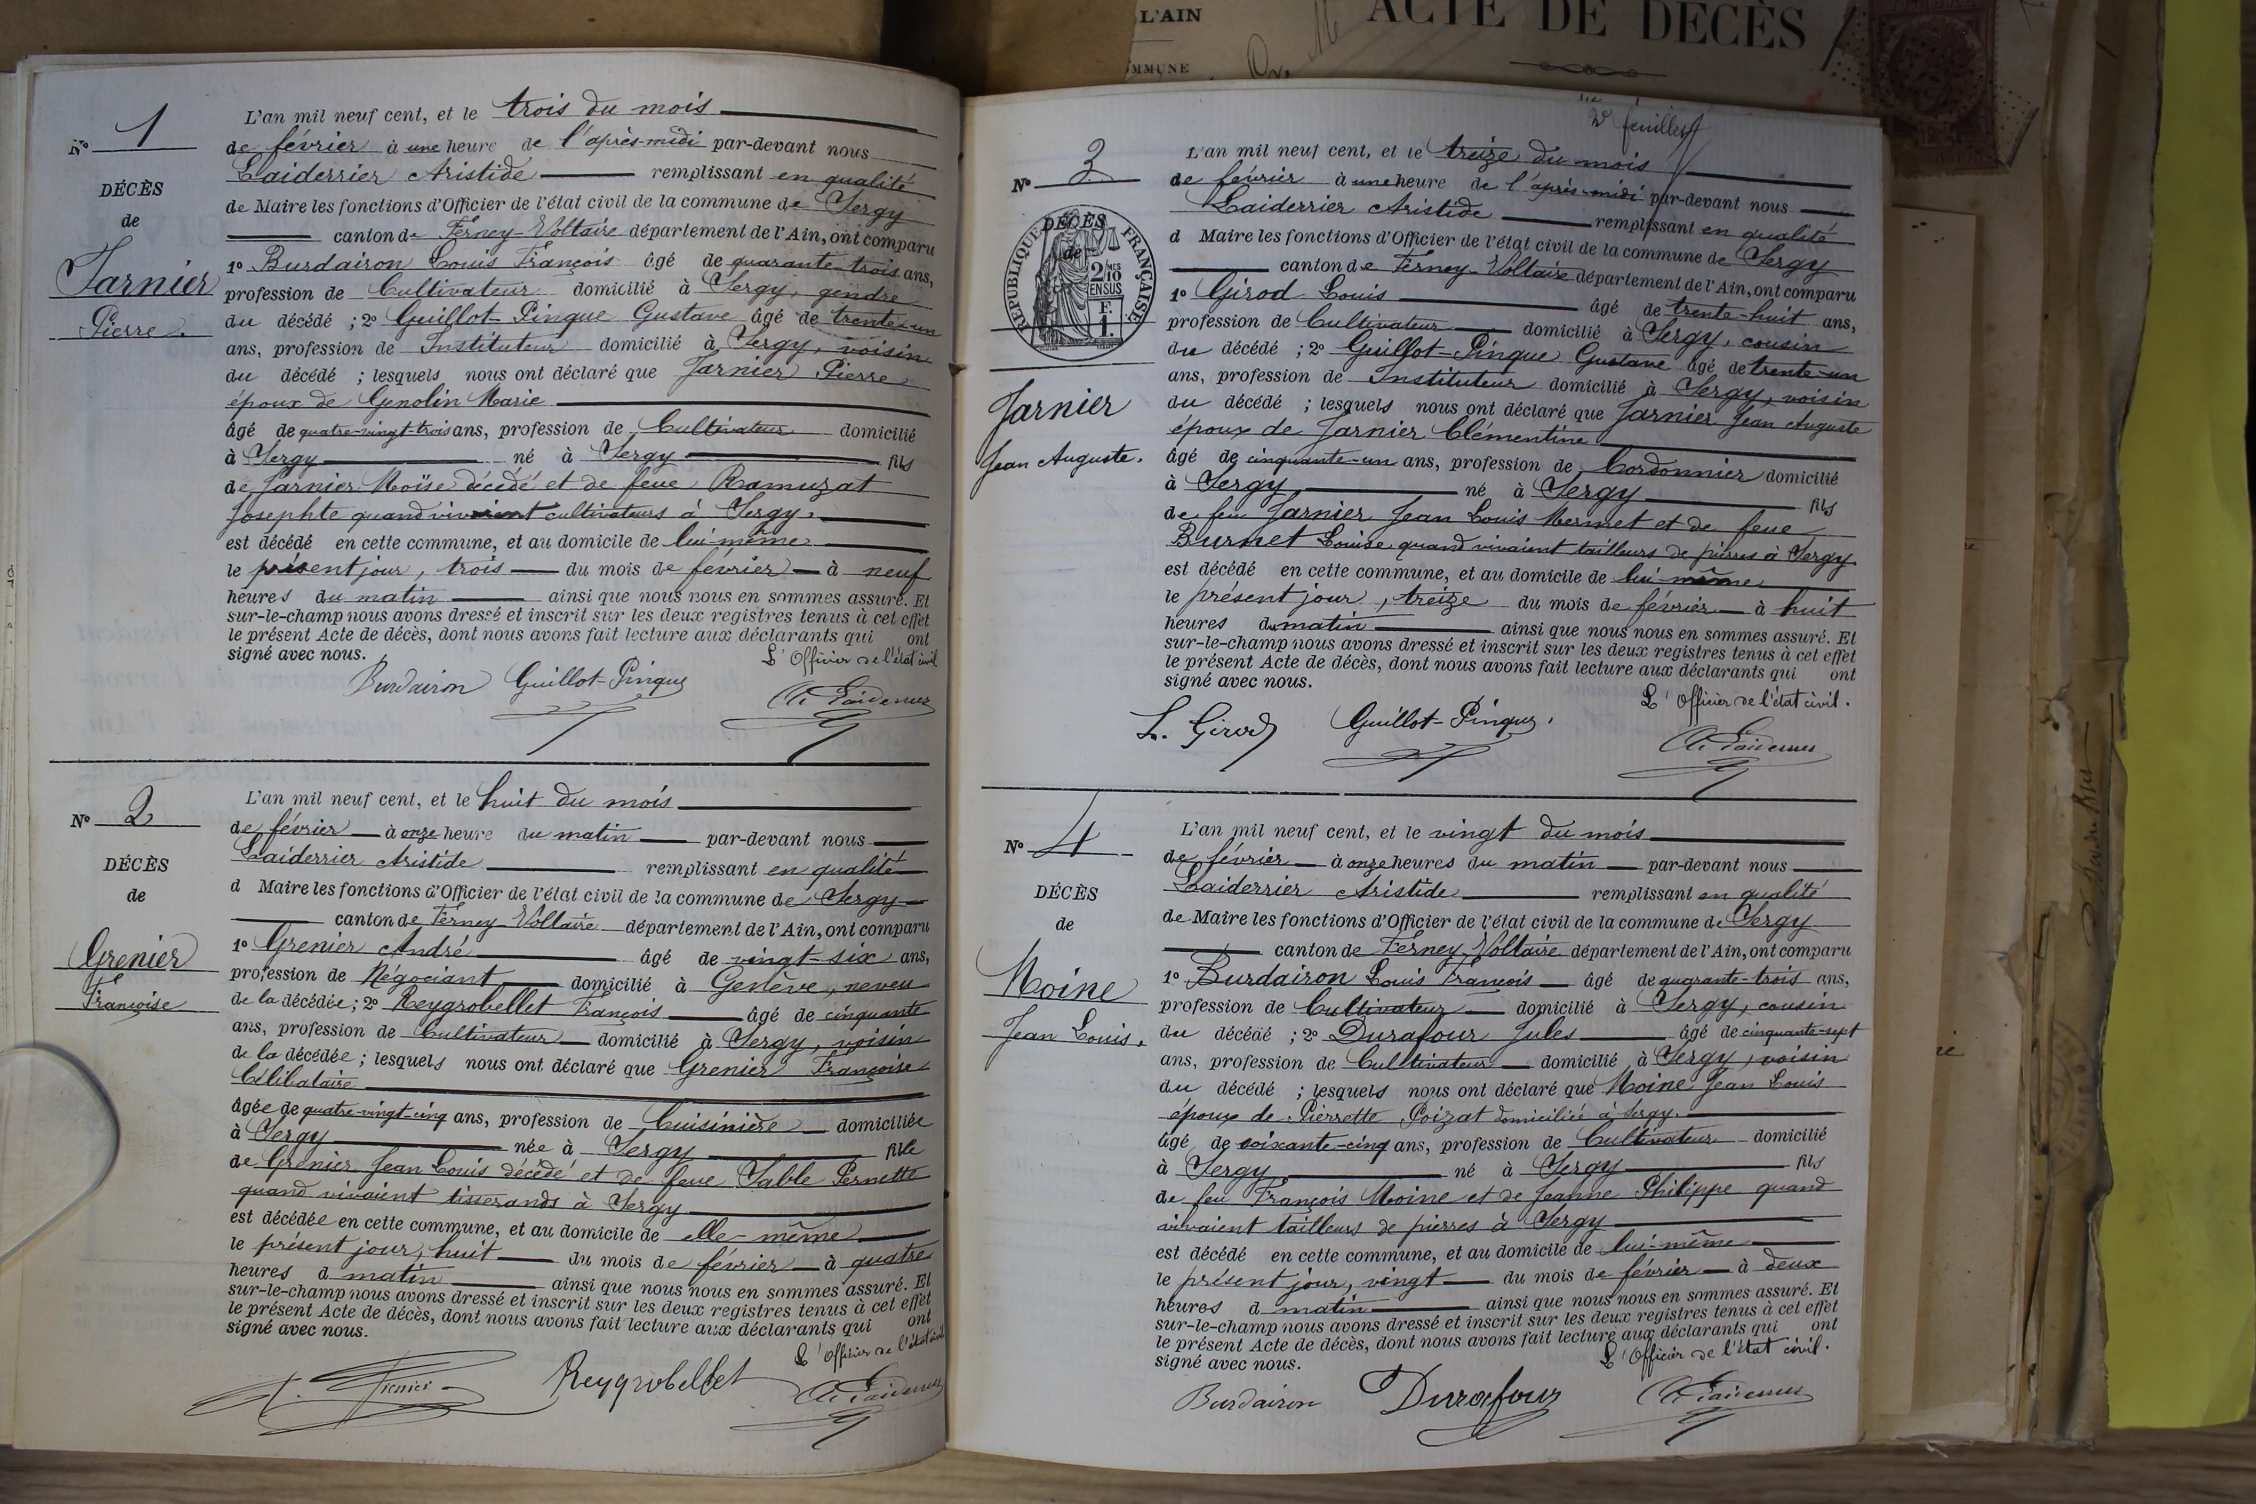 L'AIN
ACTE DE DÉCÈS
MMUNE
N° 1
DÉCÈS
de
Jarnier
Pierre.
L'an mil neuf cent, et le trois du mois
de février à une heure de l'après-midi par-devant nous
Laiderrier Aristide remplissant en qualité
de Maire les fonctions d'Officier de l'état civil de la commune de Sergy
canton de Ferney-Voltaire département de l'Ain, ont comparu
1° Burdairon Louis François âgé de quarante-trois ans,
profession de Cultivateur domicilié à Sergy, gendre
du décédé ; 2° Guillot-Pingue Gustave âgé de trente-un
ans, profession de Instituteur domicilié à Sergy, voisin
du décédé ; lesquels nous ont déclaré que Jarnier Pierre
époux de Genolin Marie
âgé de quatre-vingt-trois ans, profession de Cultivateur domicilié
à Sergy né à Sergy fils
de Jarnier Moïse décédé et de feue Ramuzat
Josephte quand vivaient cultivateurs à Sergy.
est décédé en cette commune, et au domicile de lui-même
le présent jour, trois du mois de février à neuf
heures du matin ainsi que nous nous en sommes assuré. Et
sur-le-champ nous avons dressé et inscrit sur les deux registres tenus à cet effet
le présent Acte de décès, dont nous avons fait lecture aux déclarants qui ont
signé avec nous.
L'Officier de l'état civil
Burdairon Guillot-Pingue
N° 2
DÉCÈS
de
Grenier
Françoise
L'an mil neuf cent, et le huit du mois
de février à onze heure du matin par-devant nous
Laiderrier Aristide remplissant en qualité
d Maire les fonctions d'Officier de l'état civil de la commune de Sergy
canton de Ferney-Voltaire département de l'Ain, ont comparu
1° Grenier André âgé de vingt-six ans,
profession de Négociant domicilié à Genève, neveu
de la décédée ; 2° Reygrobellet François âgé de cinquante
ans, profession de Cultivateur domicilié à Sergy, voisin
de la décédée ; lesquels nous ont déclaré que Grenier Françoise
Célibataire
âgée de quatre-vingt-cinq ans, profession de Cuisinière domiciliée
à Sergy née à Sergy fille
de Grenier Jean Louis décédé et de feue Sable Pernette
quand vivaient tisserands à Sergy
est décédée en cette commune, et au domicile de elle-même
le présent jour, huit du mois de février à quatre
heures d matin ainsi que nous nous en sommes assuré. Et
sur-le-champ nous avons dressé et inscrit sur les deux registres tenus à cet effet
le présent Acte de décès, dont nous avons fait lecture aux déclarants qui ont
signé avec nous.
L'Officier de l'état civil
A. Grenier Reygrobellet
2e feuillet
N° 3
DÉCÈS
de
RÉPUBLIQUE FRANÇAISE
2/10 EN SUS
F.
1.
Jarnier
Jean Auguste.
L'an mil neuf cent, et le treize du mois
de février à une heure de l'après-midi par-devant nous
Laiderrier Aristide remplissant en qualité
d Maire les fonctions d'Officier de l'état civil de la commune de Sergy
canton de Ferney-Voltaire département de l'Ain, ont comparu
1° Girod Louis âgé de trente-huit ans,
profession de Cultivateur domicilié à Sergy, cousin
du décédé ; 2° Guillot-Pingue Gustave âgé de trente-un
ans, profession de Instituteur domicilié à Sergy, voisin
du décédé ; lesquels nous ont déclaré que Jarnier Jean Auguste
époux de Jarnier Clémentine
âgé de cinquante-un ans, profession de Cordonnier domicilié
à Sergy né à Sergy fils
de feu Jarnier Jean Louis Mermet et de feue
Burnet Louise quand vivaient tailleurs de pierres à Sergy.
est décédé en cette commune, et au domicile de lui-même
le présent jour, treize du mois de février à huit
heures du matin ainsi que nous nous en sommes assuré. Et
sur-le-champ nous avons dressé et inscrit sur les deux registres tenus à cet effet
le présent Acte de décès, dont nous avons fait lecture aux déclarants qui ont
signé avec nous.
L'Officier de l'état civil.
L. Girod Guillot-Pingue.
N° 4
DÉCÈS
de
Moine
Jean Louis.
L'an mil neuf cent, et le vingt du mois
de février à onze heures du matin par-devant nous
Laiderrier Aristide remplissant en qualité
de Maire les fonctions d'Officier de l'état civil de la commune de Sergy
canton de Ferney-Voltaire département de l'Ain, ont comparu
1° Burdairon Louis François âgé de quarante-trois ans,
profession de Cultivateur domicilié à Sergy, cousin
du décédé ; 2° Durafour Jules âgé de cinquante-sept
ans, profession de Cultivateur domicilié à Sergy, voisin
du décédé ; lesquels nous ont déclaré que Moine Jean Louis
époux de Pierrette Poizat domiciliée à Sergy.
âgé de soixante-cinq ans, profession de Cultivateur domicilié
à Sergy né à Sergy fils
de feu François Moine et de Jeanne Philippe quand
vivaient tailleurs de pierres à Sergy
est décédé en cette commune, et au domicile de lui-même
le présent jour, vingt du mois de février à deux
heures d matin ainsi que nous nous en sommes assuré. Et
sur-le-champ nous avons dressé et inscrit sur les deux registres tenus à cet effet
le présent Acte de décès, dont nous avons fait lecture aux déclarants qui ont
signé avec nous.
L'Officier de l'état civil.
Burdairon Durafour